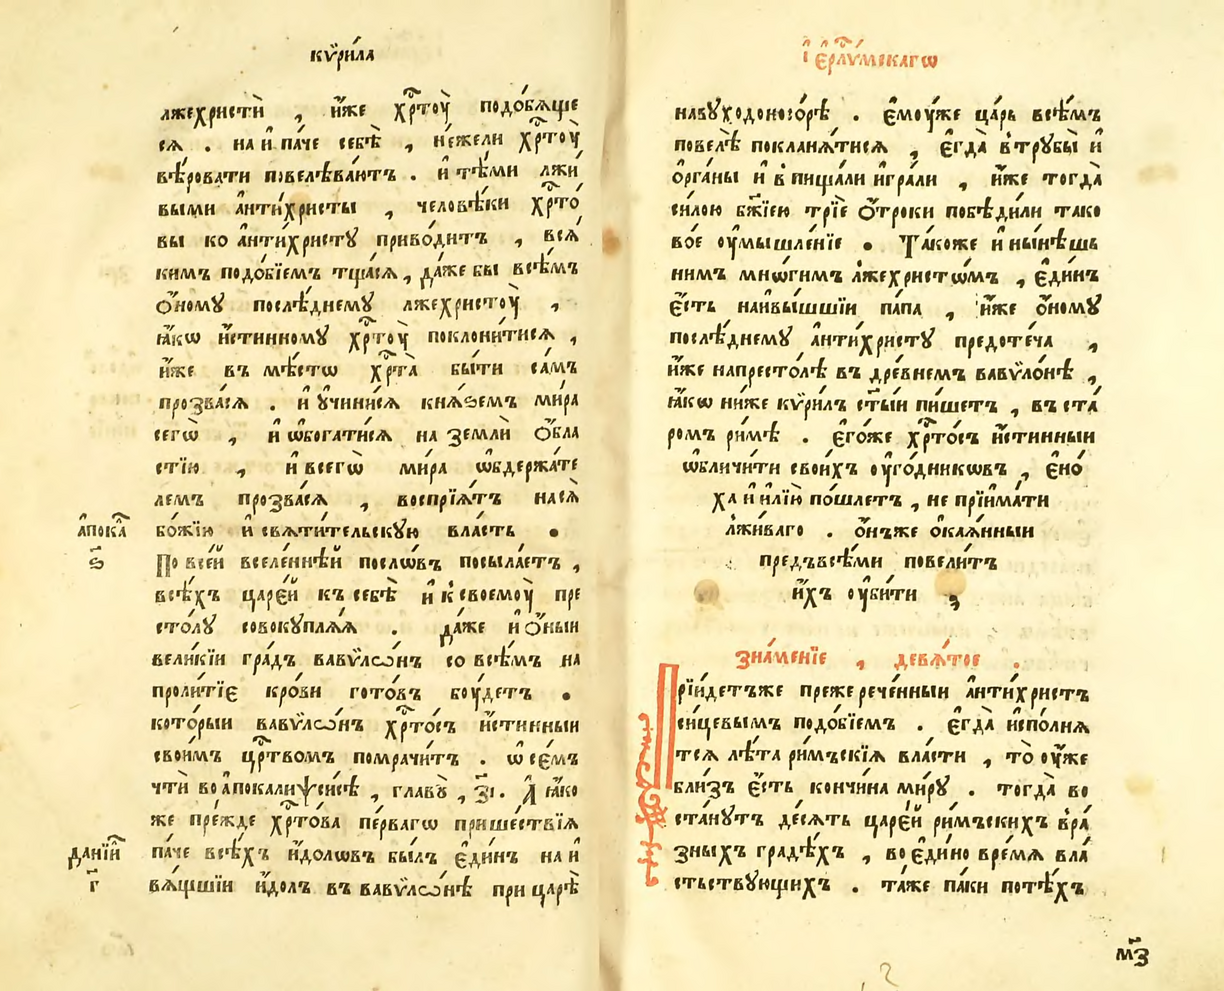 кѵ̈ри́ла
лжехристѝ , и҆́же хрⷭ҇тоу̀ подо́бѧщїе
сѧ . наи҆па́че себѐ , не́жели хрⷭ҇тоу̀
вѣ́ровати повелѣва́ютъ . и҆ тѣ́ми лжи́
выми а҆нтихри́сты , человѣ́ки хрⷭ҇то́
вы ко а҆нти́христꙋ приво́дитъ , всѧ́
кимъ подо́бїемъ тща́сѧ , да́же бы всѣ́мъ
ѻ҆́номꙋ послѣ́днемꙋ лжехристоу̀ ,
ꙗ҆́кѡ и҆́стинномꙋ хрⷭ҇тоу̀ поклони́тисѧ ,
и҆́же въ мѣ́стѡ хрⷭ҇та̀ бы́ти са́мъ
прозва́сѧ . и҆ ᲂу҆чини́сѧ кнѧ́ꙃемъ ми́ра
сегѡ̀ , и҆ ѡ҆богати́сѧ на землѝ ѻ҆́бла
стїю , и҆ всегѡ̀ ми́ра ѡ҆бдержа́те
лемъ прозва́сѧ , воспрїѧ́тъ на сѧ̀
а҆пока́ⷧ
ѕ҃
бо́жїю и҆ свѧти́тельскꙋю вла́сть .
По все́й вселе́ннѣй послѡ́въ посыла́етъ ,
всѣ́хъ царе́й къ себѐ и҆ к своемоу̀ пре
сто́лꙋ совокꙋплѧ́ѧ . да́же и҆ ѻ҆́ный
вели́кїи гра́дъ вавѷлѡ́нъ со всѣ́мъ на
проли́тїе кро́ви гото́въ боу́детъ .
кото́рыи вавѷлѡ́нъ хрⷭ҇то́съ и҆́стинныи
свои́мъ црⷭ҇твомъ помрачи́тъ . ѡ҆ се́мъ
чтѝ во а҆покали́ѱисѣ , глава̀ , з҃і . А҆ ꙗ҆́ко
же пре́жде хрⷭ҇то́ва пе́рвагѡ прише́ствїѧ
дані́й
г҃
па́че всѣ́хъ и҆́долѡвъ бы́лъ є҆ди́нъ наи҆
вѧ́щшїи и҆́долъ въ вавѷлѡ́нѣ при царѣ̀
і҆ер҇лⷭи́мскагѡ
навꙋходоно́сорѣ . є҆моу́же ца́рь всѣ́мъ
повелѣ̀ поклонѧ́тисѧ , є҆гда̀ в трꙋбы̀ и҆
ѻ҆рга́ны и҆ в пища́ли и҆гра́ли , и҆́же тогда̀
си́лою бж҃їею трїѐ ѻ҆́троки побѣди́ли тако
во́е ᲂу҆мышле́нїе . Та́коже и҆ ны́нѣшь
нимъ мнѡ́гимъ лжехристѡ́мъ , є҆ди́нъ
є҆́сть наивы́шшїи па́па , и҆́же ѻ҆́номꙋ
послѣ́днемꙋ а҆нти́христꙋ предоте́ча ,
и҆́же на престо́лѣ въ дре́внемъ вавѷло́нѣ ,
ꙗ҆́кѡ ни́же кѵ̈ри́лъ ст҃ы́и пи́шетъ , въ ста́
ромъ ри́мѣ . є҆го́же хрⷭ҇то́съ и҆́стинныи
ѡ҆бличи́ти свои́хъ ᲂу҆го́дникѡвъ , є҆но́
ха и҆ и҆лїю̀ по́шлетъ , не прїима́ти
лжи́ваго . ѻ҆́нъже ѻ҆каѧ́нныи
предъ всѣ́ми повели́тъ
и҆́хъ ᲂу҆би́ти ,
зна́менїе , девѧ́тое .
Прїи́детъже прежерече́нныи а҆нти́христъ
си́цевымъ подо́бїемъ . є҆гда̀ и҆спо́лнѧ
тсѧ лѣ́та ри́мъскїѧ вла́сти , то̀ ᲂу҆́же
бли́зъ є҆́сть кончи́на ми́рꙋ . тогда̀ во
ста́нꙋтъ де́сѧть царе́й ри́мъскихъ в ра́
зныхъ гра́дѣхъ , во є҆ди́но вре́мѧ вла́
стьствꙋющихъ . та́же па́ки по тѣ́хъ
м҃з